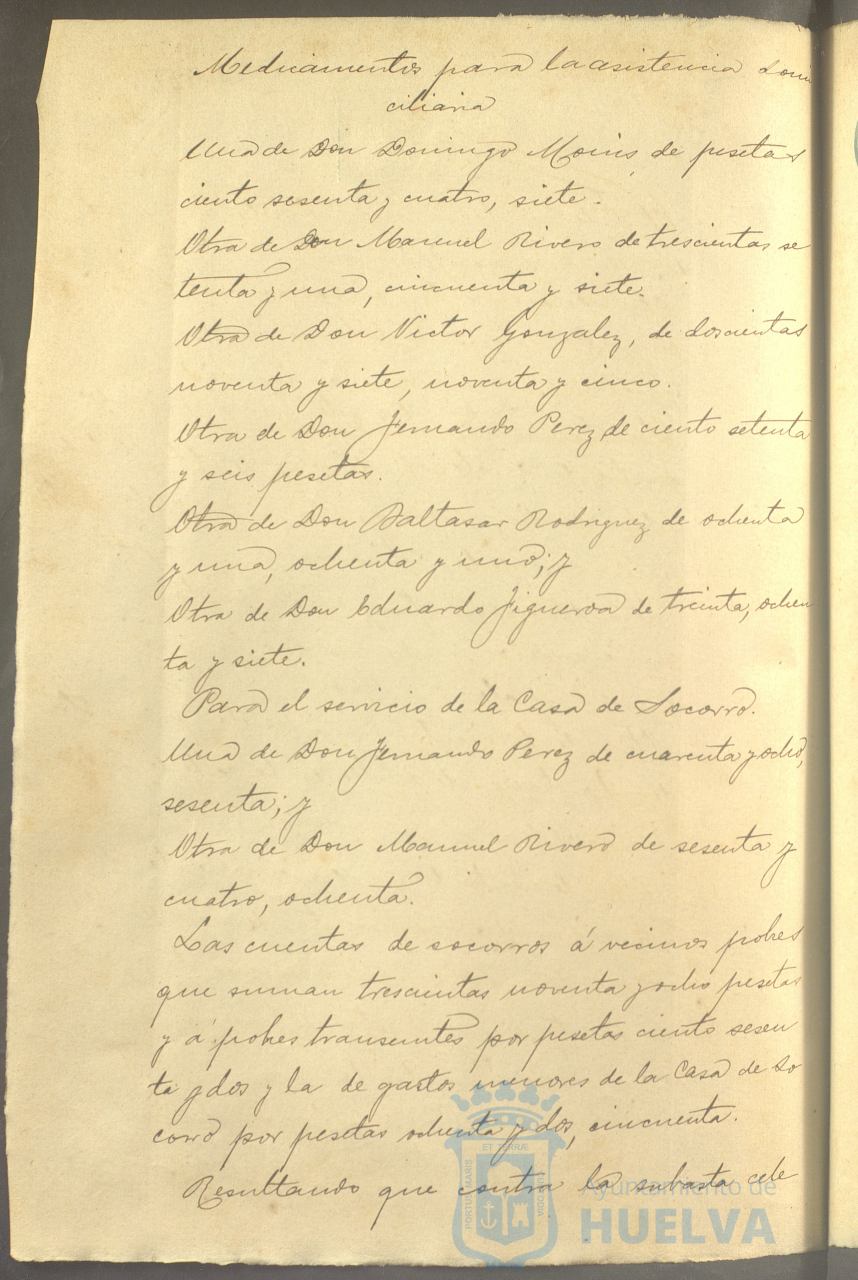 Medicamentos para la asistencia domi
ciliaria
Una de Don Domingo de pesetas
ciento sesenta y cuatro, siete.
Otra de Don Manuel Rivero de trescientas se
tenta y una, cincuenta y siete.
Otra de Don Victor Gonzalez, de doscientas
noventa y siete, noventa y cinco.
Otra de Don Fernando Perez de ciento setenta
y seis pesetas.
Otra de Don Baltasar Rodriguez de ochenta
y una, ochenta y uno; y
Otra de Don Eduardo Figueroa de treinta, ochen
ta y siete.
Para el servicio de la Casa de Socorro.
Una de Don Fernando Perez de cuarenta y ocho,
sesenta; y
Otra de Don Manuel Rivero de sesenta y
cuatro, ochenta.
Las cuentas de socorros á vecinos pobres
que suman trescientas noventa y ocho pesetas
y á pobres transeuntes por pesetas ciento sesen
ta y dos y la de gastos menores de la Casa de So
corro por pesetas ochenta y dos, cincuenta.
Resultando que contra la subasta cele
PORTUS MARIS
ET TERRÆ
CUSTODIA
Ayuntamiento de
HUELVA